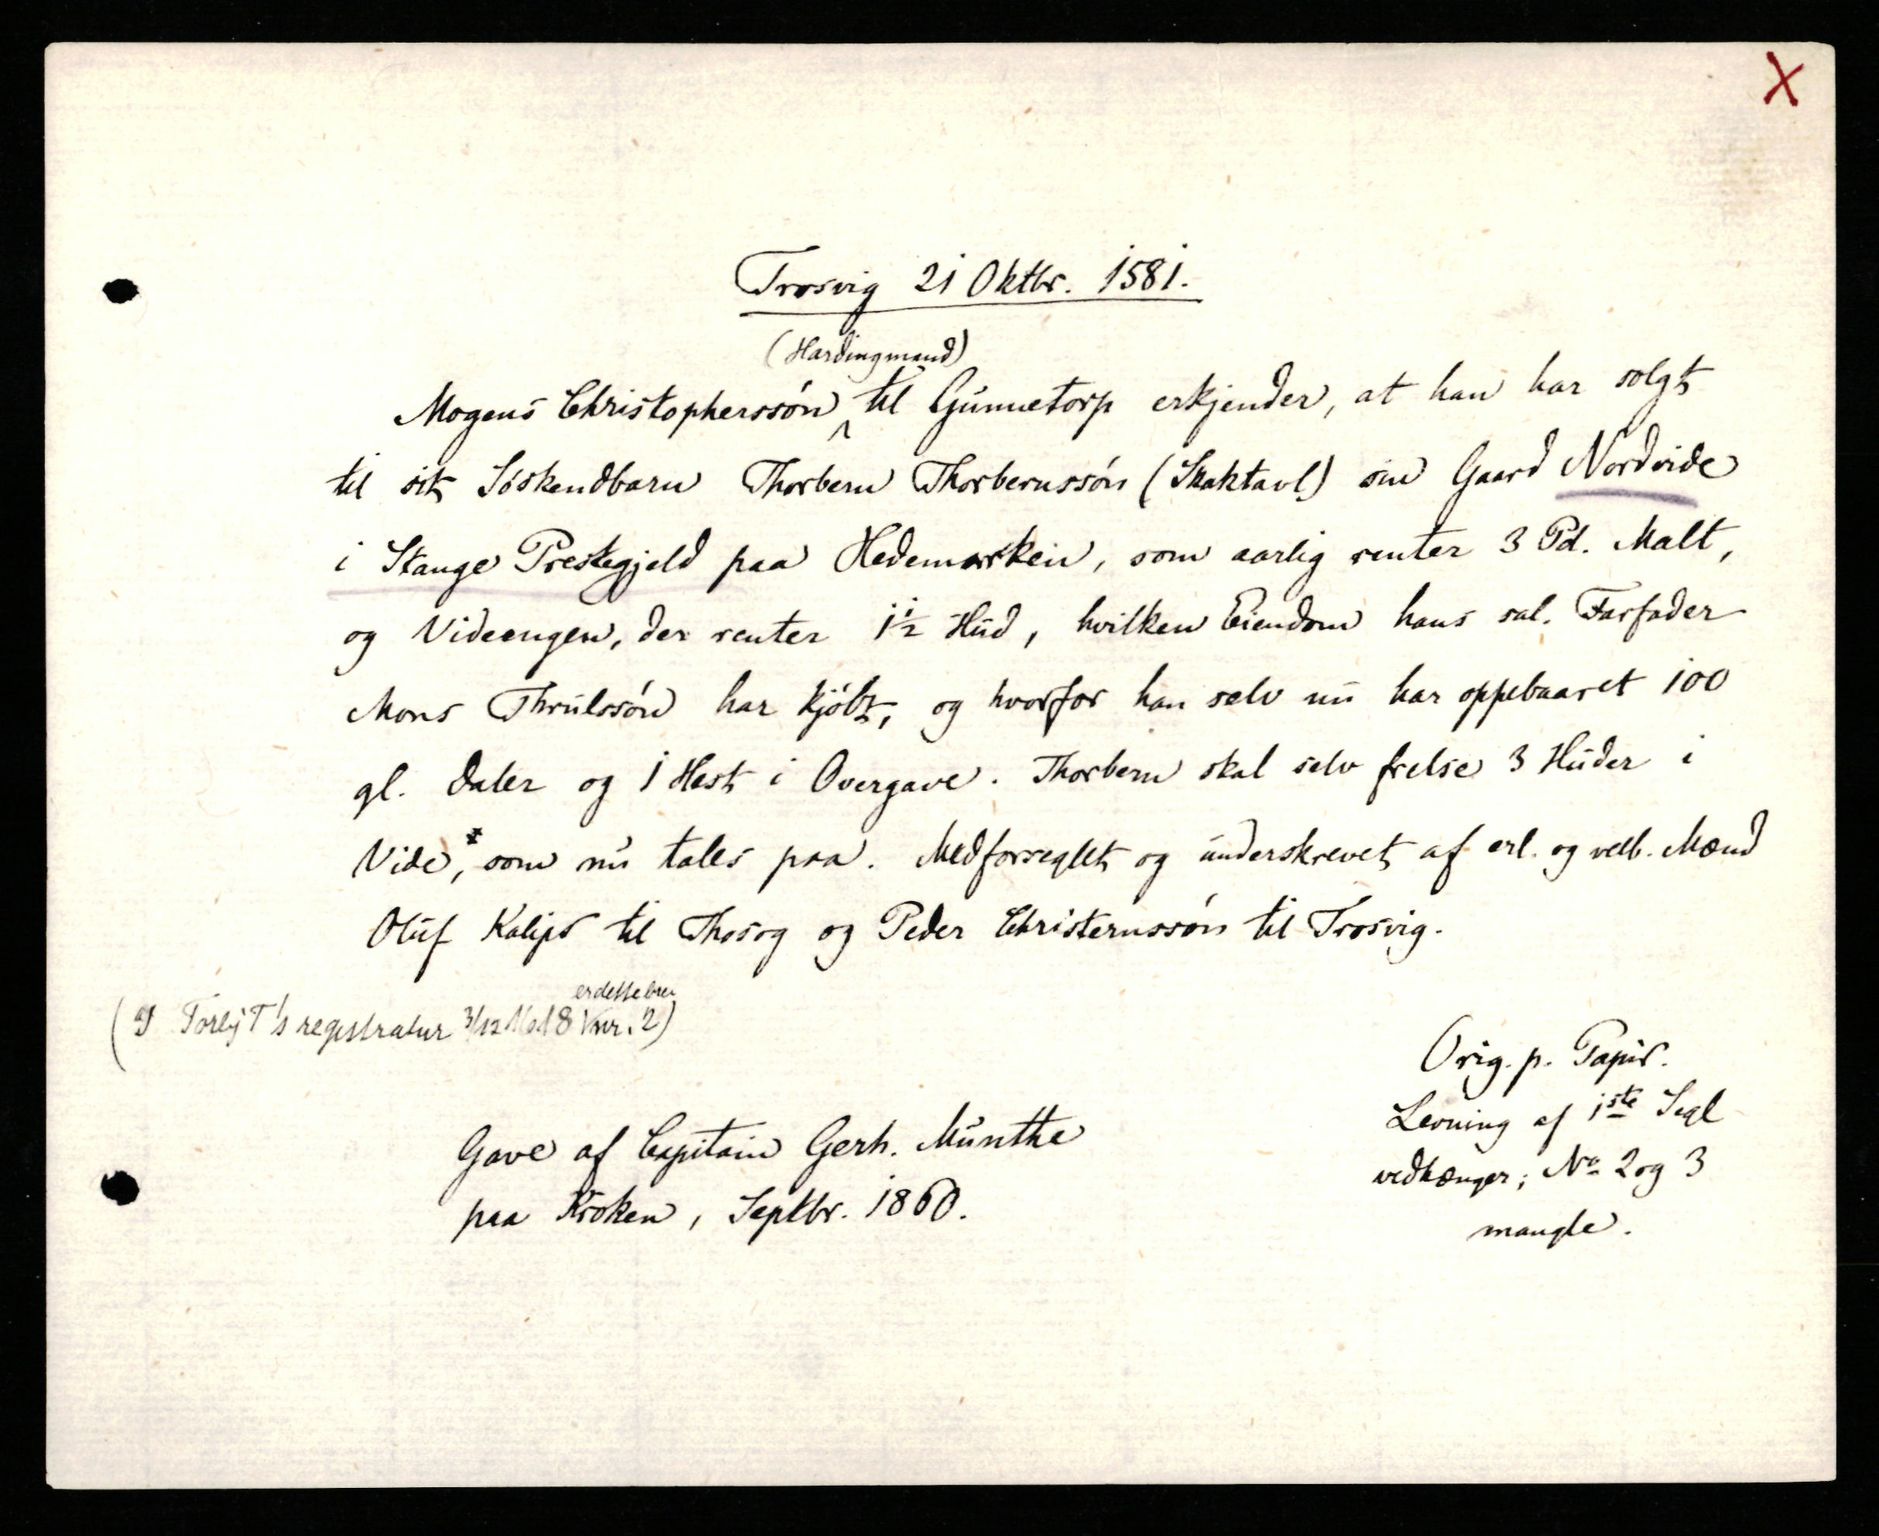 X
Trosvig 21 Oktbr. 1581.
(Hardingmand)
Mogens Christopherssön ^ til Gunnetorp erkjender, at han har solgt
til sit Söskendbarn Thorbern Thorbernssön (Skaktavl) sin Gaard Nordvide
i Stange Prestegjeld paa Hedemarken, som aarlig renter 3 Pd. Malt,
og Videengen, der renter 1½ Hud, hvilken Eiendom hans sal. Farfader
Mons Thrulssön har kjöbt, og hvorfor han selv nu har oppebaaret 100
gl. Daler og 1 Hest i Overgave. Thorbern skal selv frelse 3 Huder i
Vide, som nu tales paa. Medforseglet og underskrevet af erl. og velb. Mænd
Oluf Kalips til Thosog og Peder Christernssön til Trosvig.
er dette brev
(I registratur 3/12 nr. 2)
Orig. p. Papir.
Levning af 1ste Segl
vedhænger; No 2 og 3
mangle.
Gave af Capitain Gerh. Munthe
paa Kroken, Septbr. 1860.